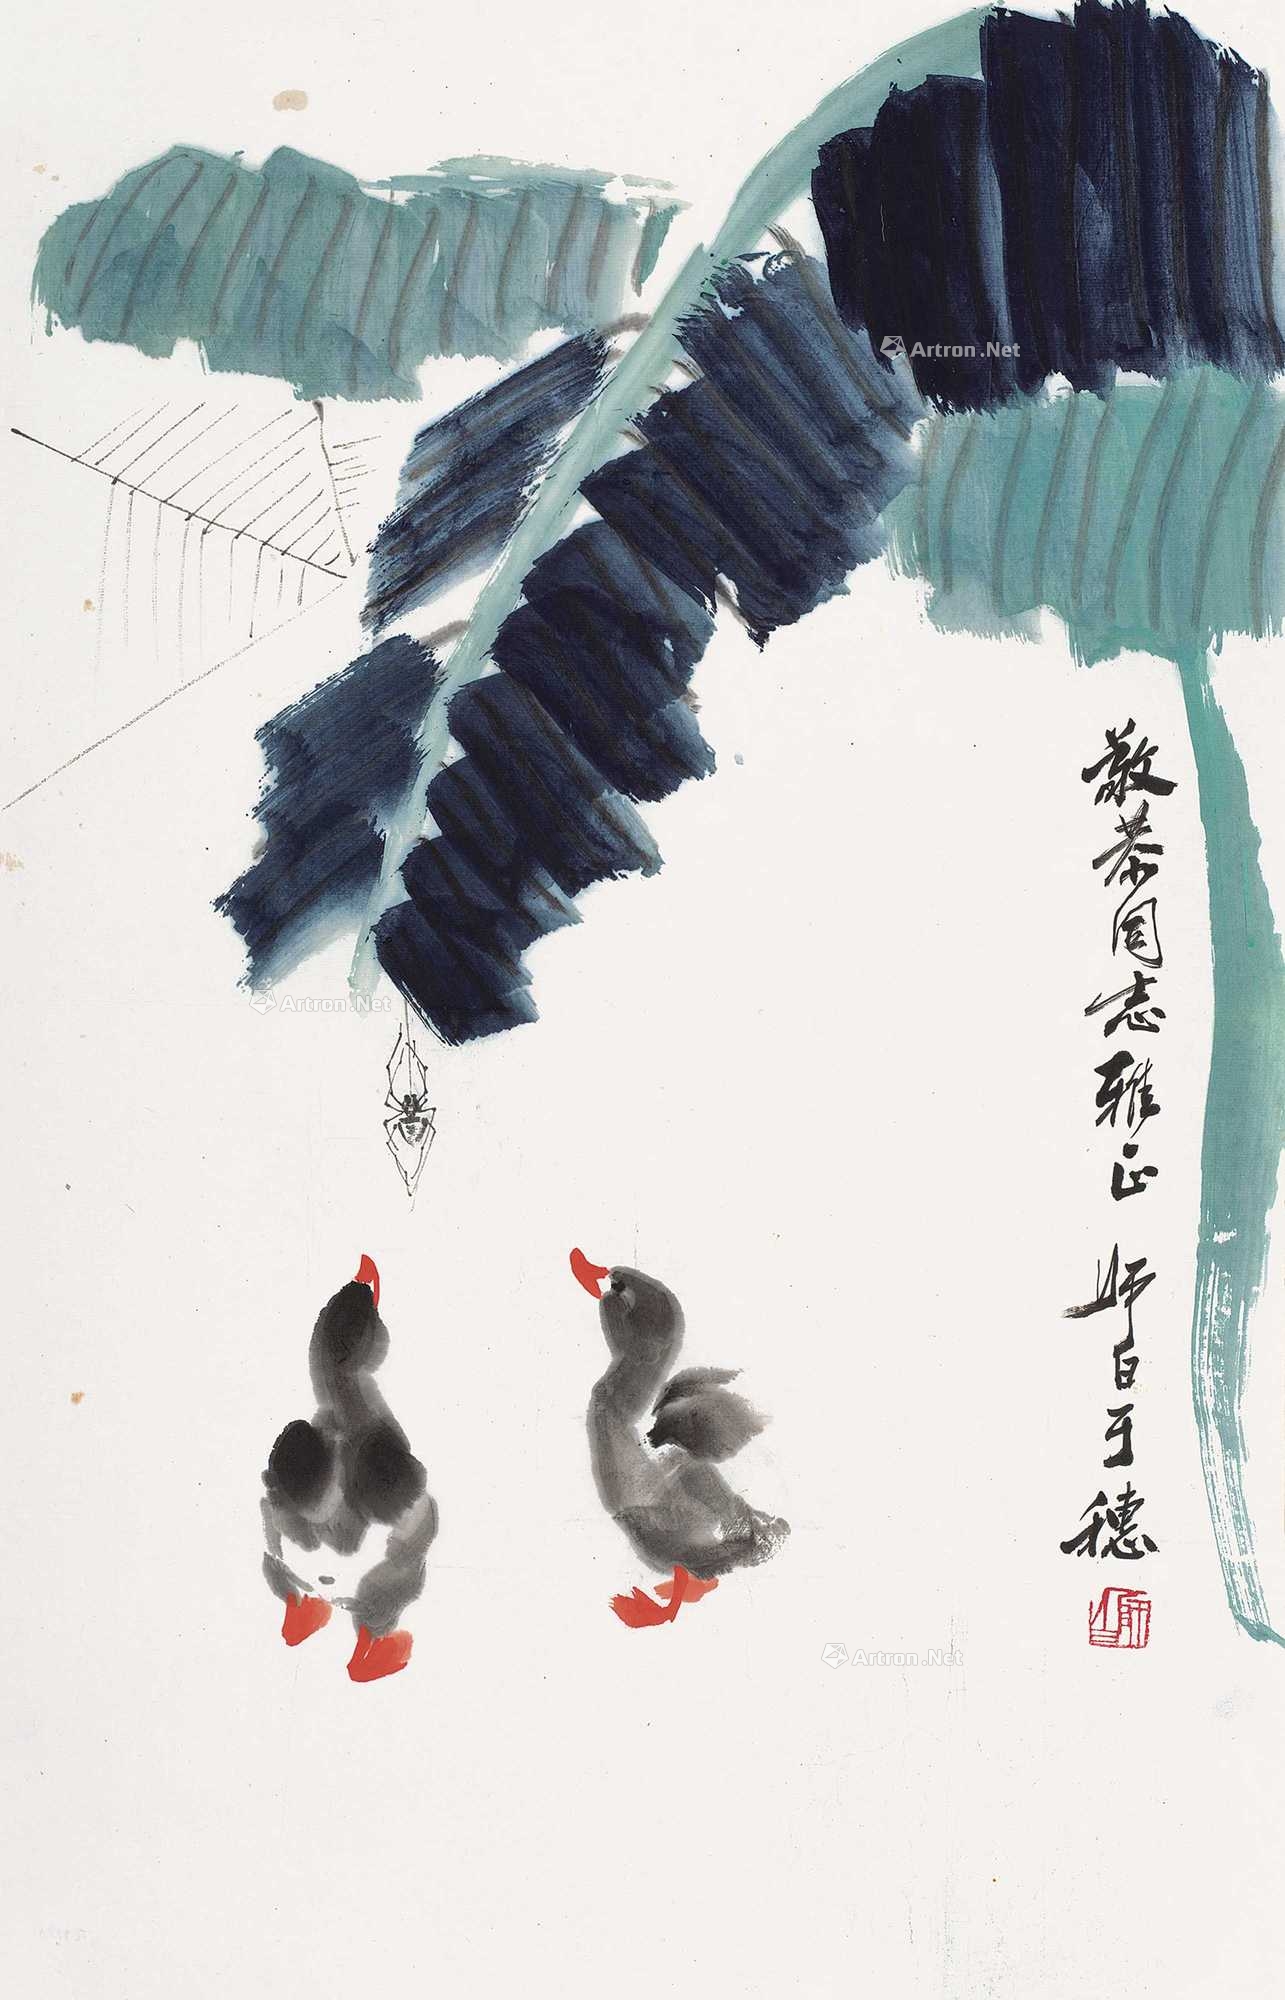 敬恭同志雅正 师白于穗
Artron.Net
Artron.Net
Artron.Net